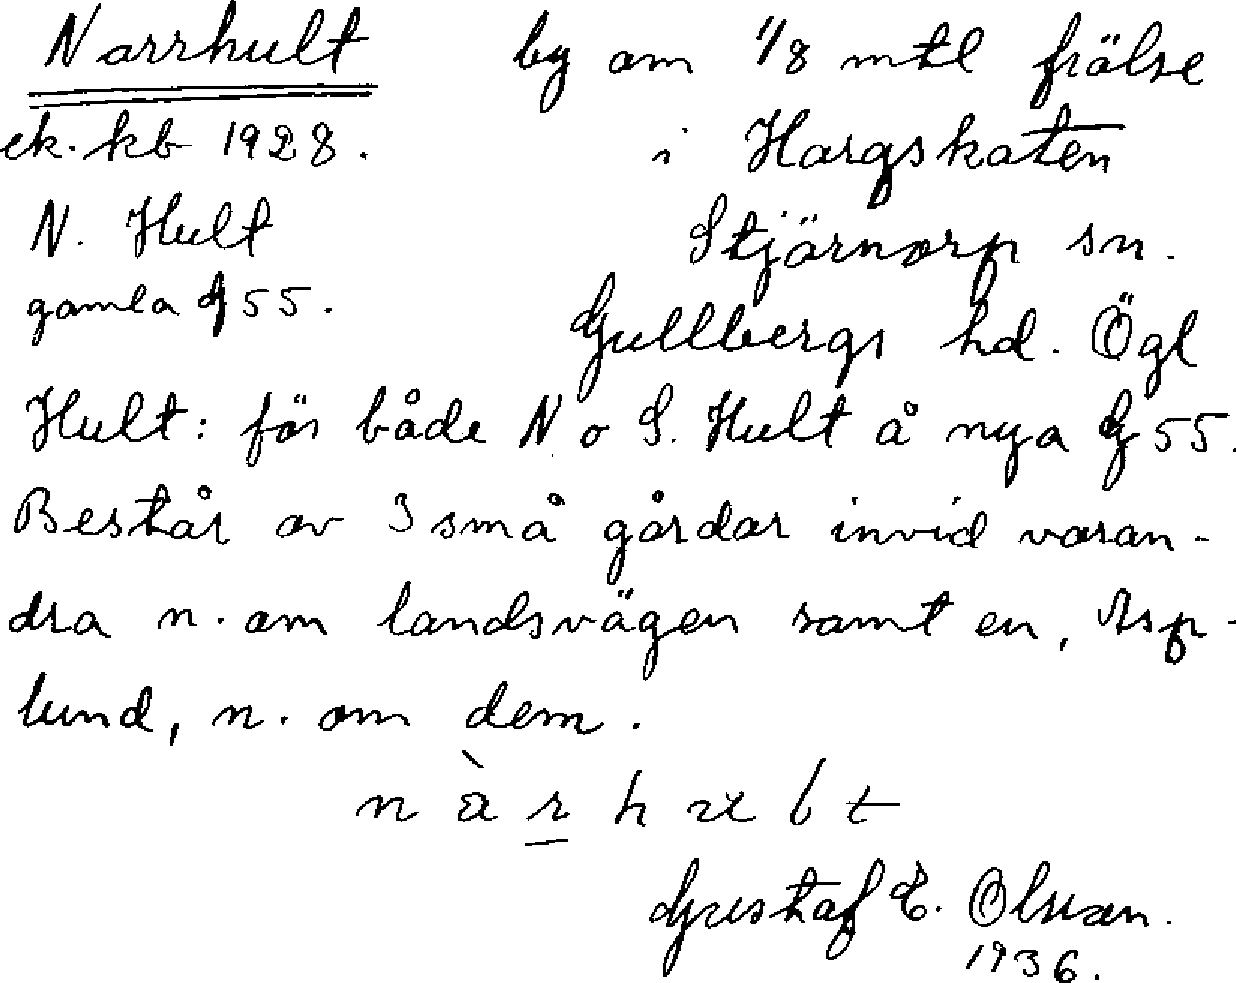 Norrhult
ek. kb 1928.
N. Hult
gamla G 55.
by om 1/8 mtl frälse
i Hargskaten
Stjärnorp sn.
Gullbergs hd. Ögl
Hult: för både N o S. Hult å nya G 55.
Består av 3 små gårdar invid varan-
dra n. om landsvägen samt en, Asp-
lund, n. om dem.
n à r h u l t
Gustaf E. Olsson.
1936.